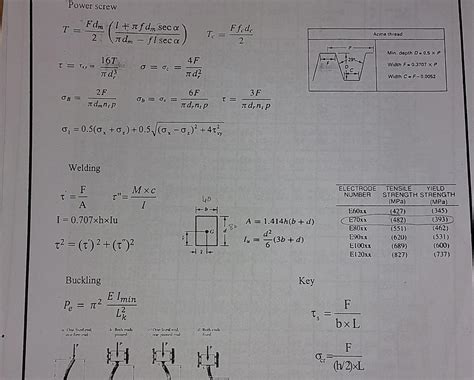 Power screw
T = Fd_m/2 ( (l + πfd_m sec α) / (πd_m − fl sec α) )    T_c = Ff_c d_c / 2
Acme thread
P
29°
D
F
C
Min. depth D = 0.5 × P
Width F = 0.3707 × P
Width C = F - 0.0052
τ = τ_xy = 16T / πd_r^3    σ = σ_x = 4F / πd_r^2
σ_B = 2F / πd_m n_t p    σ_b = σ_x = 6F / πd_r n_t p    τ = 3F / πd_r n_t p
σ_1 = 0.5(σ_x + σ_z) + 0.5√((σ_x − σ_z)^2 + 4τ_xy^2)
Welding
τ' = F / A    τ" = M × c / I
I = 0.707×h×Iu
τ^2 = (τ')^2 + (τ")^2
b
G
d
A = 1.414h(b + d)
I_u = d^2/6 (3b + d)
ELECTRODE NUMBER    TENSILE STRENGTH (MPa)    YIELD STRENGTH (MPa)
E60xx    (427)    (345)
E70xx    (482)    (393)
E80xx    (551)    (462)
E90xx    (620)    (531)
E100xx    (689)    (600)
E120xx    (827)    (737)
Buckling
P_e = π^2 E I_min / L_k^2
Key
τ_s = F / b×L
σ_c = F / (h/2)×L